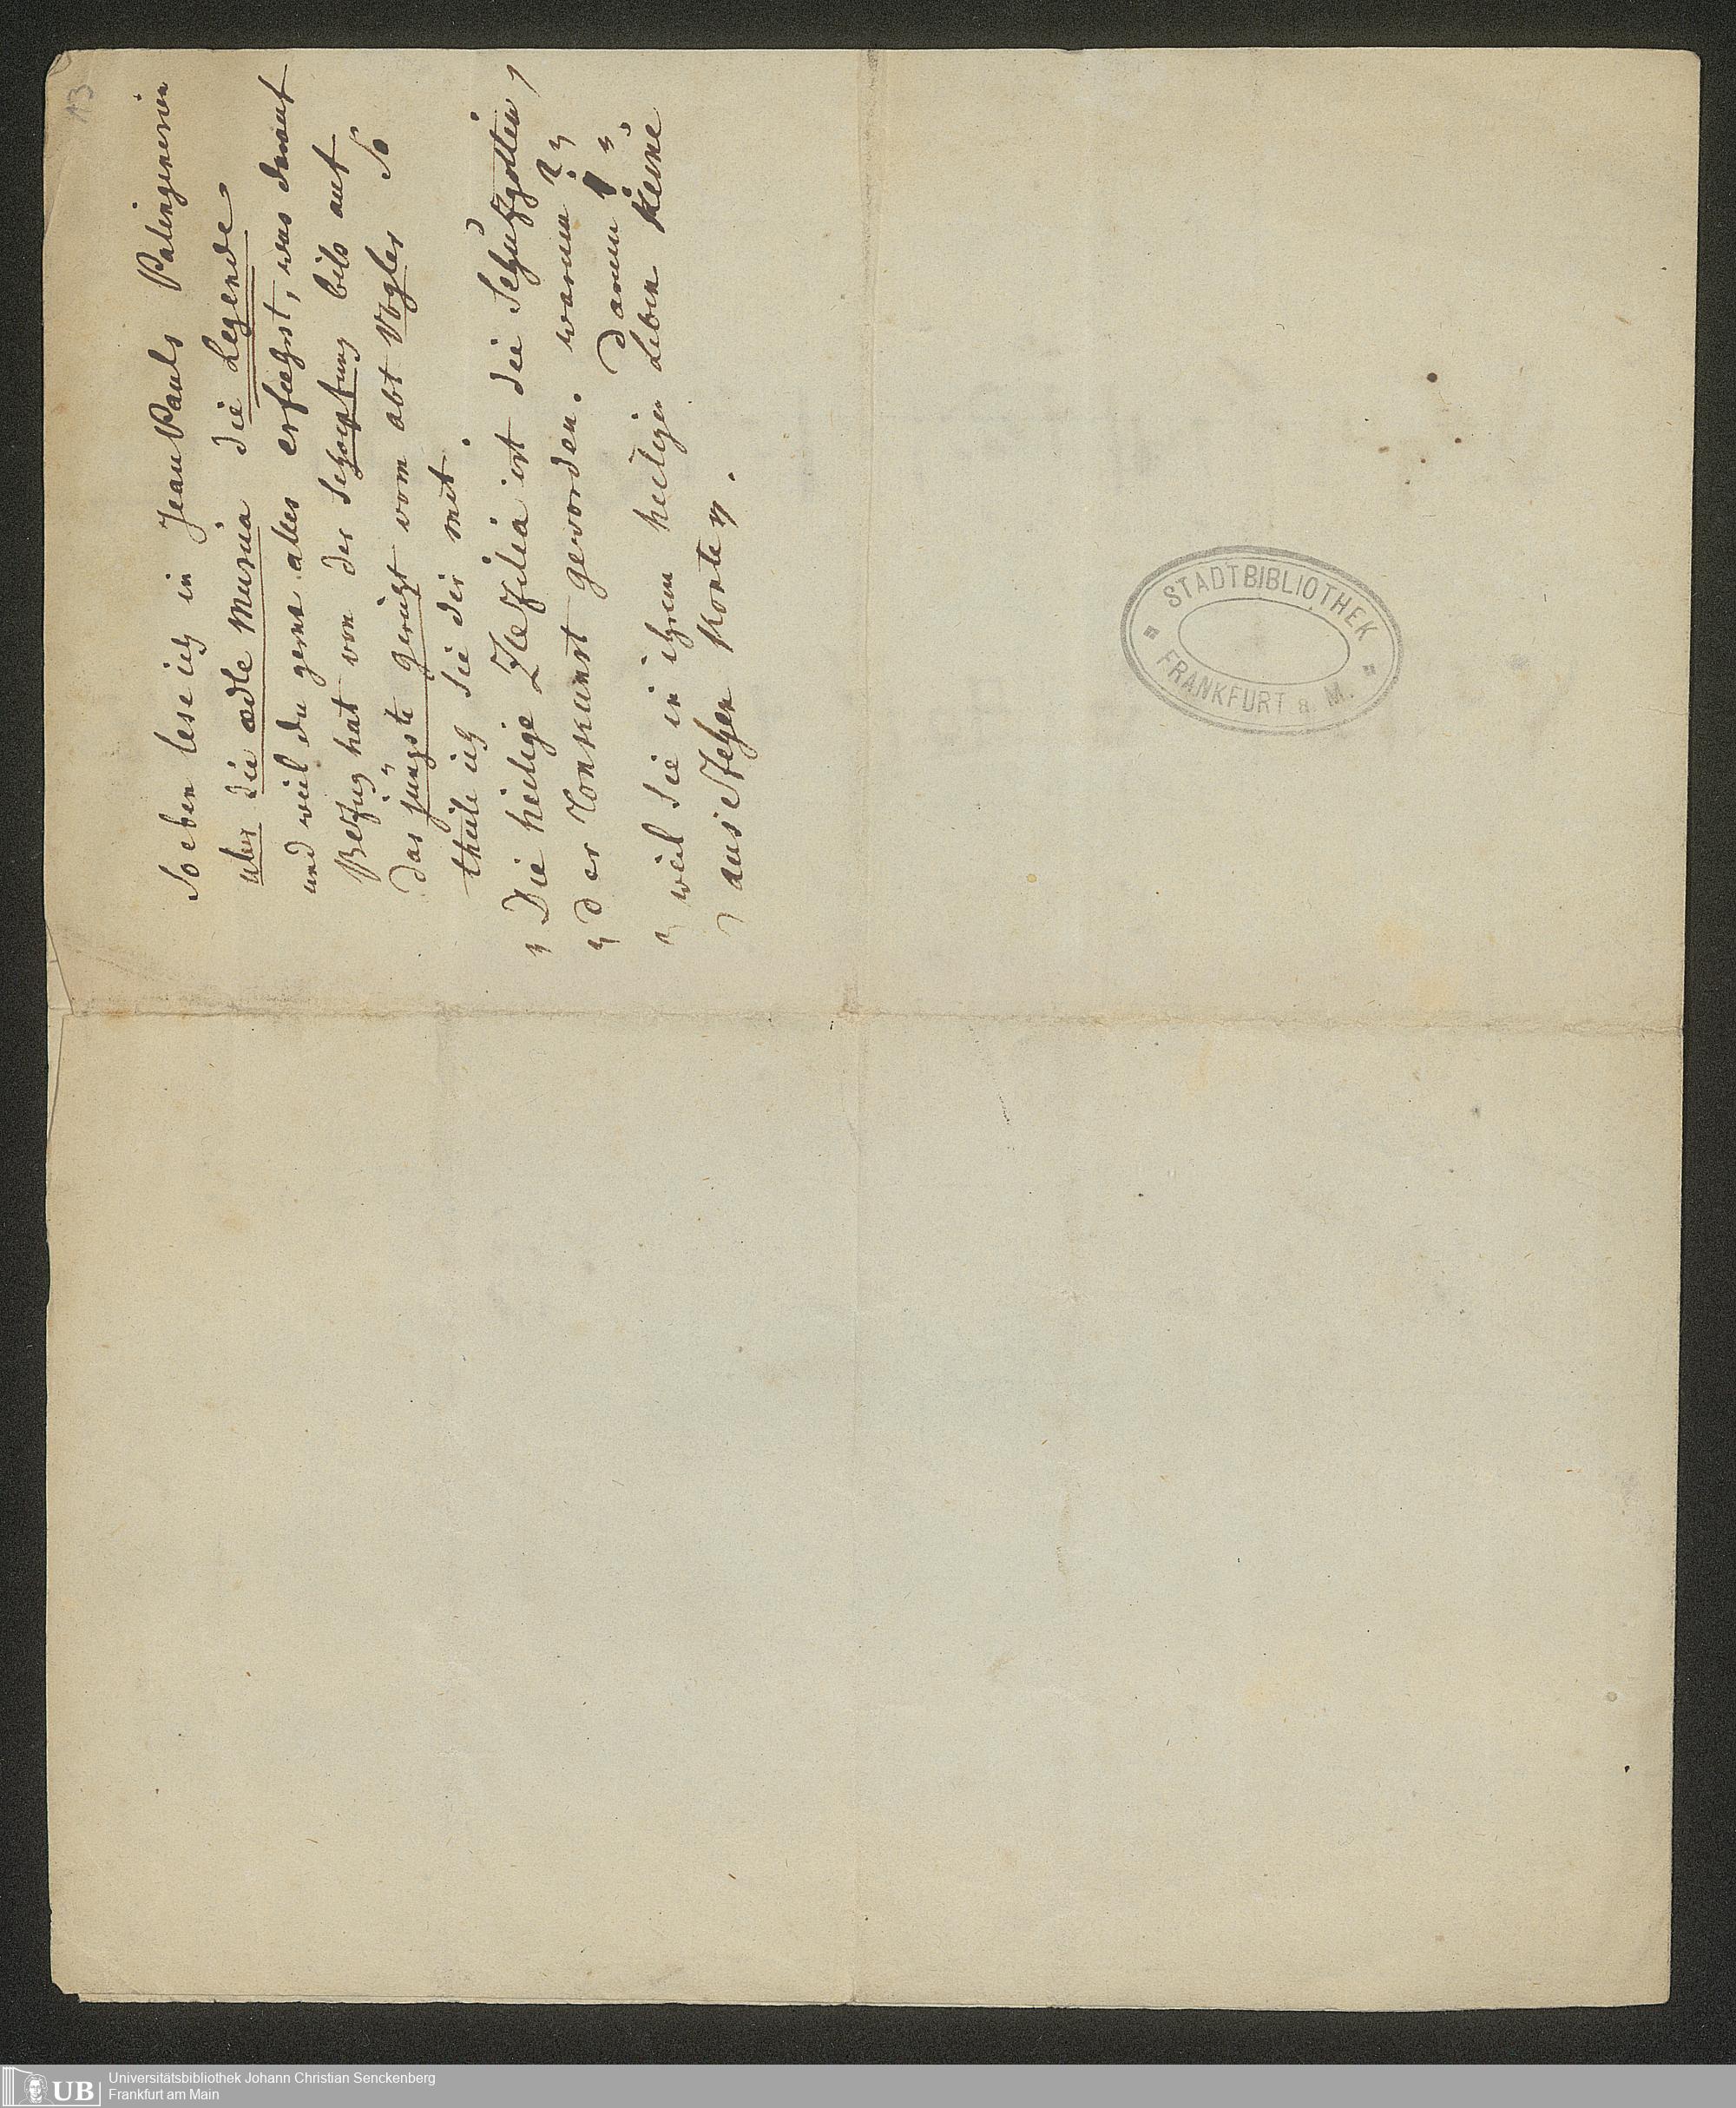 13
So eben lese ich in Jean Pauls Palingenesien
uber die edle Musica die Legende
und weil du gerne alles erfaehrst, was darauf
Bezug hat von der Schoepfung bis auf
das jungste gericht vom abt Vogler So
theile ich Sie dir mit.
„Die heilige Zäzilia ist die Schuzgöttin
„der Tonkunst geworden. warum?„
Darum!„
„weil Sie in ihrem heiligen Leben keine
„ausstehen konte„.
STADTBIBLIOTHEK
FRANKFURT a. M.
UB
Universitätsbibliothek Johann Christian Senckenberg
Frankfurt am Main